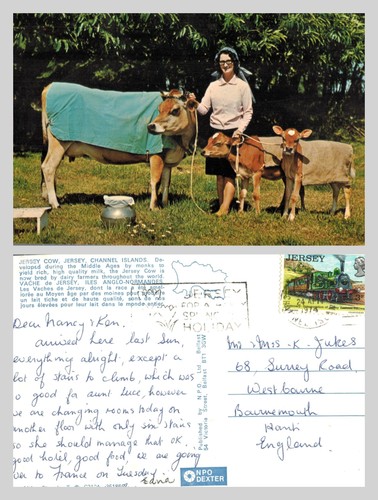 JERSEY COW, JERSEY, CHANNEL ISLANDS. De-
veloped during the Middle Ages by monks to
yield rich, high quality milk, the Jersey Cow is
now bred by dairy farmers throughout the world.
VACHE de JERSEY, ILES ANGLO-NORMANDES
Les Vaches de Jersey, dont la race a été
au Moyen âge par des moines pour
un lait riche et de haute qualité, sont de nos
jours élevées pour leur lait dans le monde entier.
Dear Nancy & Ken,
arrived here last Sun,
everything alright, except a
lot of stairs to climb, which was
no good for aunt however
we are changing rooms today on
another floor with only six stairs
so she should manage that OK.
good hotel, good food we are going
over to France on Tuesday.
Edna
Published by N.P.O. Ltd., Belfast
54 Victoria Street, Belfast BT1
NPO
DEXTER
JERSEY
FOR A
HOLIDAY
JERSEY
Mr & Mrs K. Jukes
68, Surrey Road,
Westbourne
Bournemouth
Hants
England